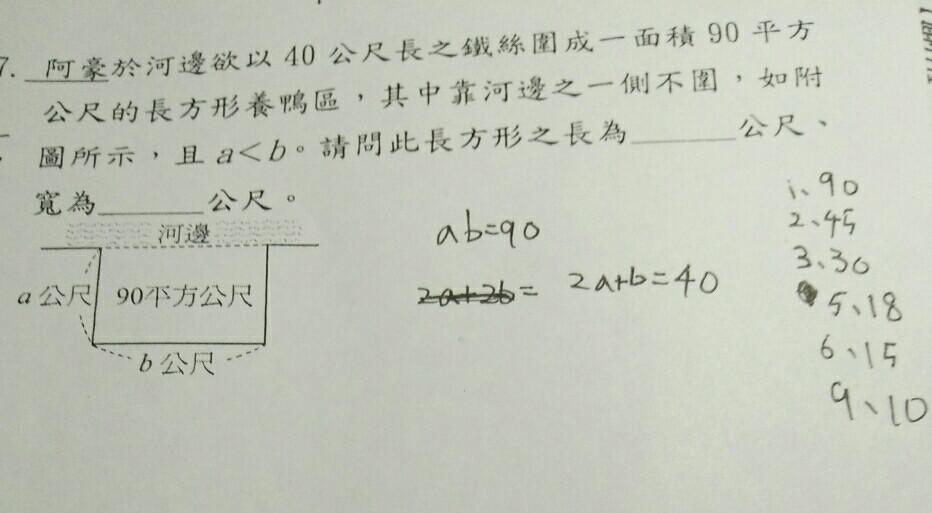 7. 阿豪於河邊欲以 40 公尺長之鐵絲圍成一面積 90 平方
公尺的長方形養鴨區，其中靠河邊之一側不圍，如附
圖所示，且 a<b。請問此長方形之長為______公尺、
寬為______公尺。
河邊
a 公尺
90平方公尺
b 公尺
ab=90
2a+2b= 2a+b=40
1、90
2、45
3、30
5、18
6、15
9、10